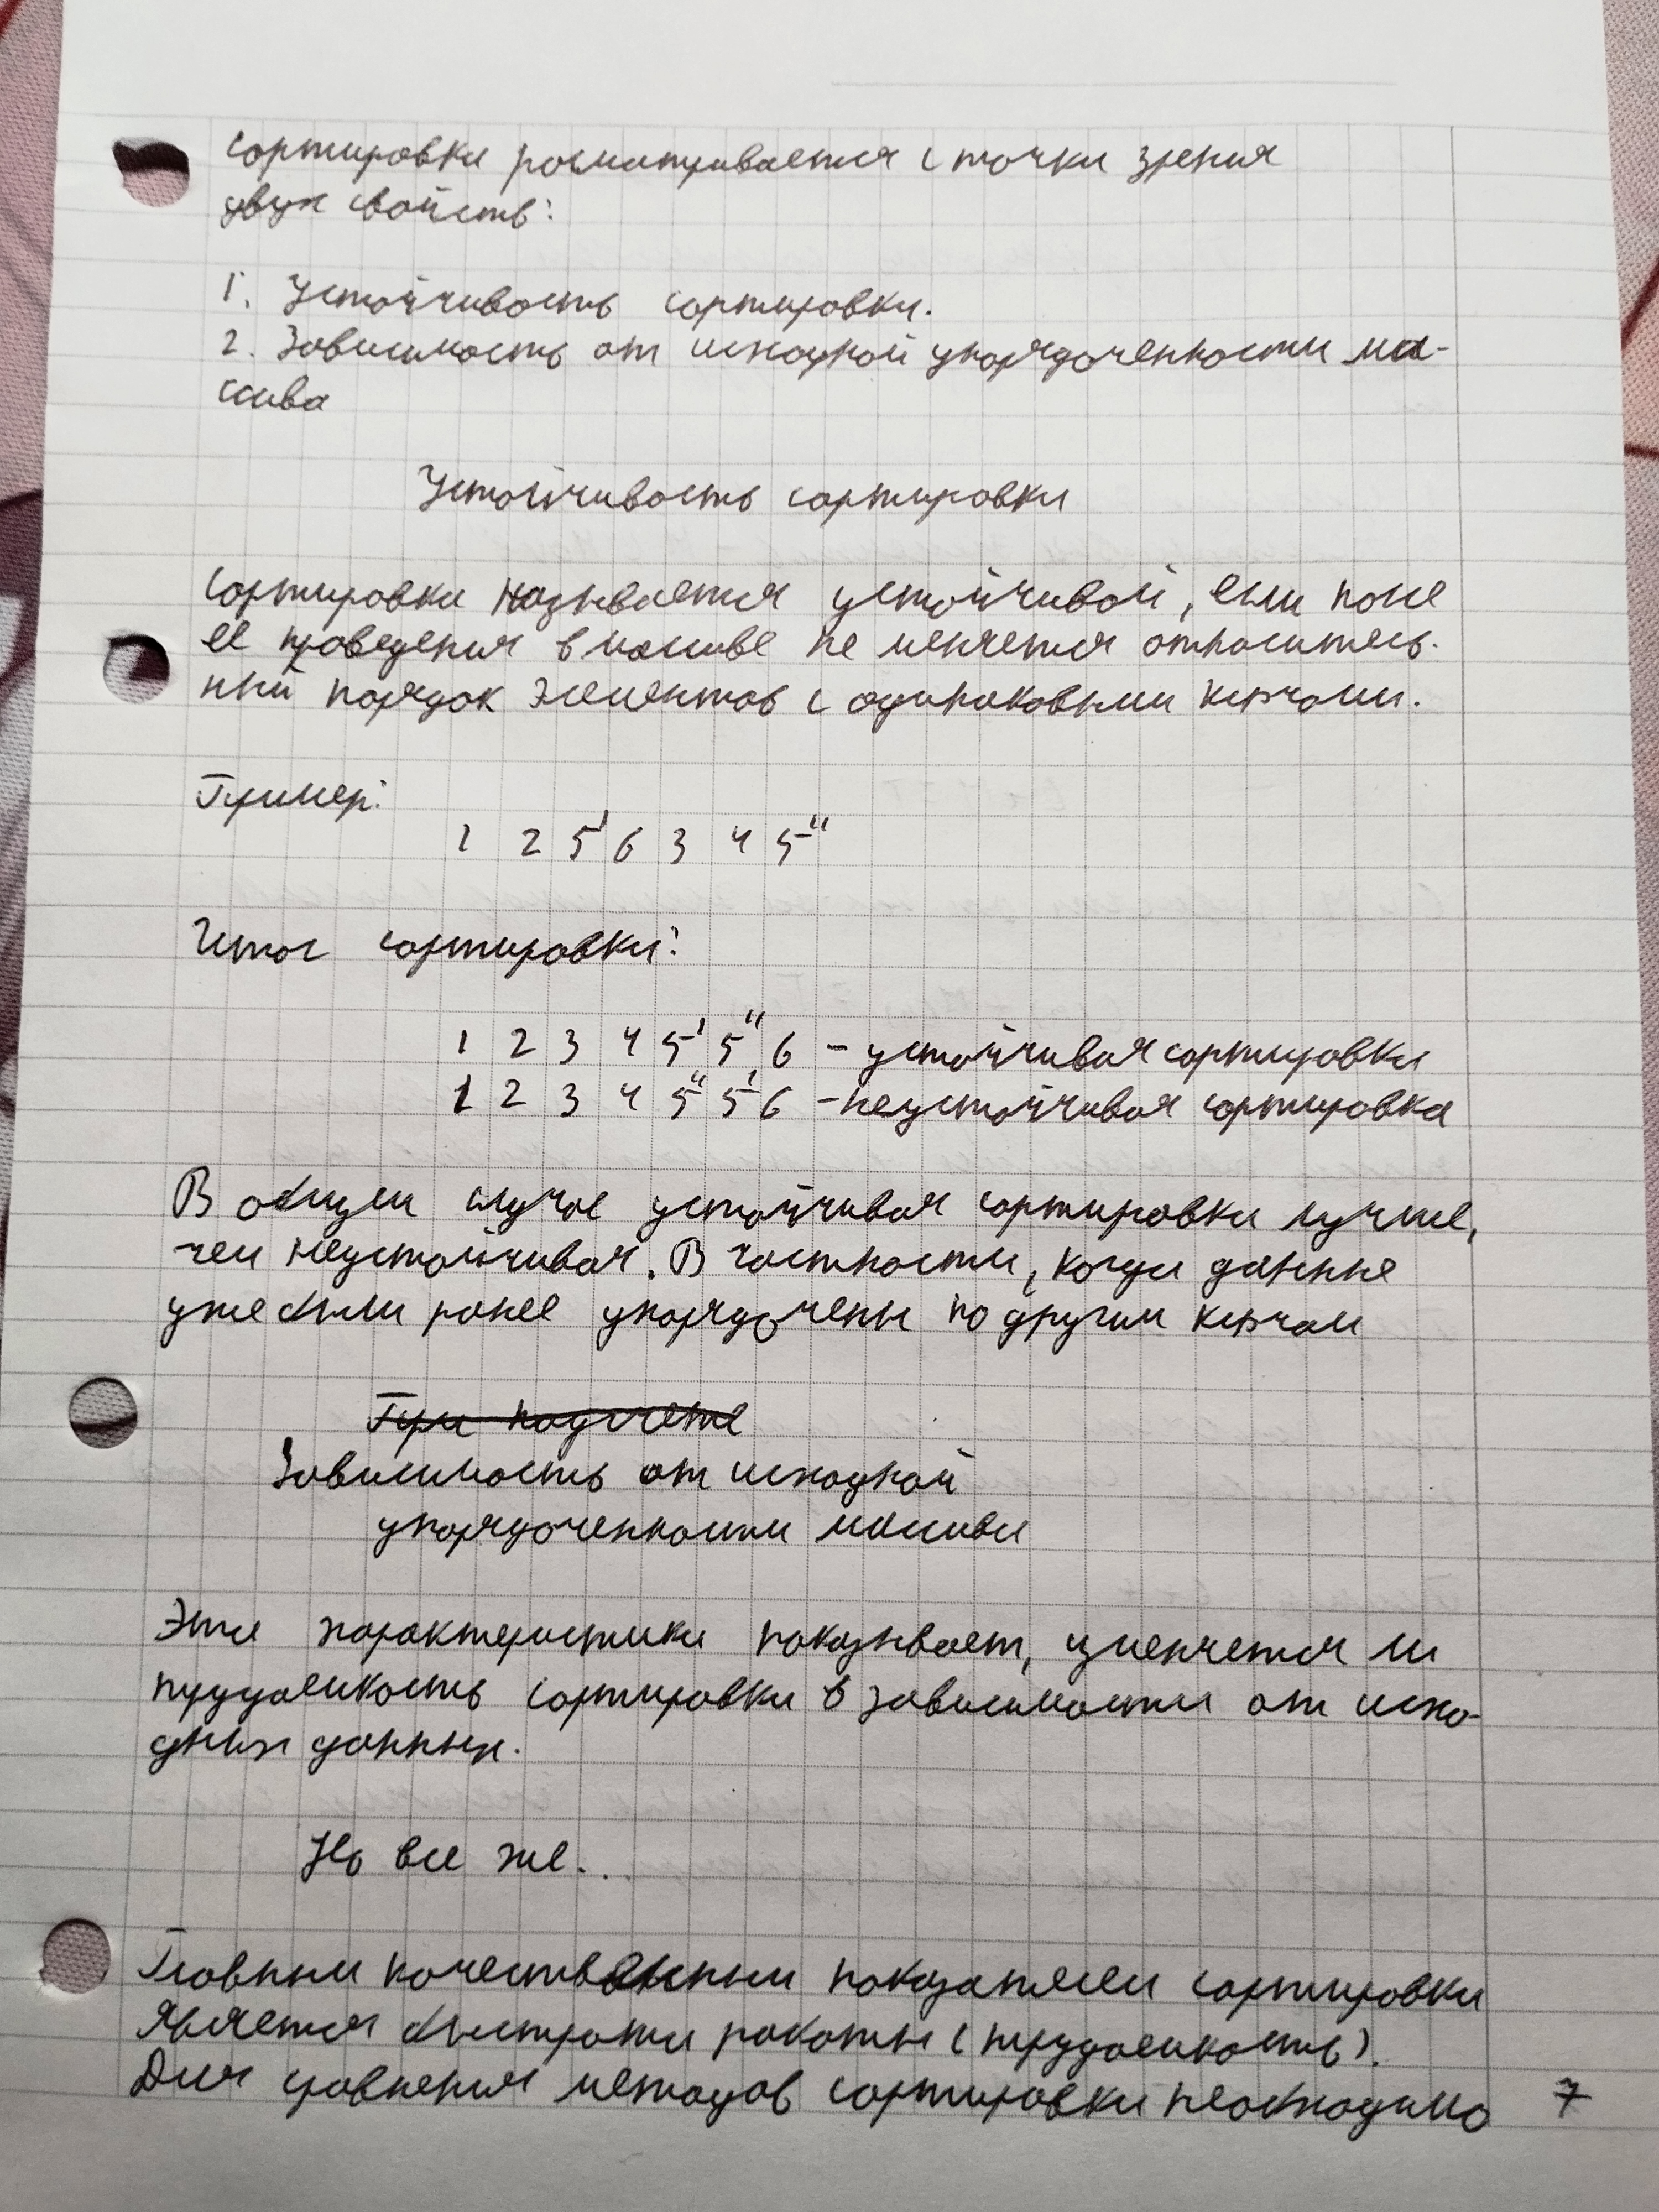 Сортировка рассматривается с точки зрения
двух свойств:
1. Устойчивость сортировки.
2. Зависимость от исходной упорядоченности ма-
ссива
Устойчивость сортировки
Сортировка называется устойчивой, если после
её проведения в массиве не меняется относитель-
ный порядок элементов с одинаковыми ключами.
Пример:
1 2 5' 6 3 4 5"
Итог сортировки:
1 2 3 4 5' 5" 6 - устойчивая сортировка
1 2 3 4 5" 5' 6 - неустойчивая сортировка
В общем случае устойчивая сортировка лучше,
чем неустойчивая. В частности, когда данные
уже были ранее упорядочены по другим ключам
При подсчете
Зависимость от исходной
упорядоченности массива
Эта характеристика показывает, изменяется ли
трудоемкость сортировки в зависимости от исхо-
дных данных.
Но все же...
Главным качественным показателем сортировки
является быстрота работы (трудоемкость).
Для сравнения методов сортировки необходимо
7